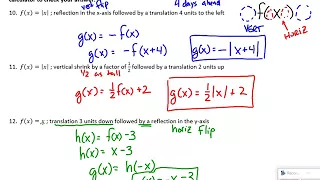 calculator to check your answer
vert flip 4 days ahead
10. f(x) = |x| ; reflection in the x-axis followed by a translation 4 units to the left
g(x) = -f(x)
g(x) = -f(x+4)
g(x) = -|x+4|
f(x)
VERT HORIZ
11. f(x) = |x| ; vertical shrink by a factor of 1/2 followed by a translation 2 units up
1/2 as tall
g(x) = 1/2 f(x) + 2
g(x) = 1/2 |x| + 2
12. f(x) = x ; translation 3 units down followed by a reflection in the y-axis
horiz flip
h(x) = f(x) - 3
h(x) = x - 3
g(x) = h(-x)